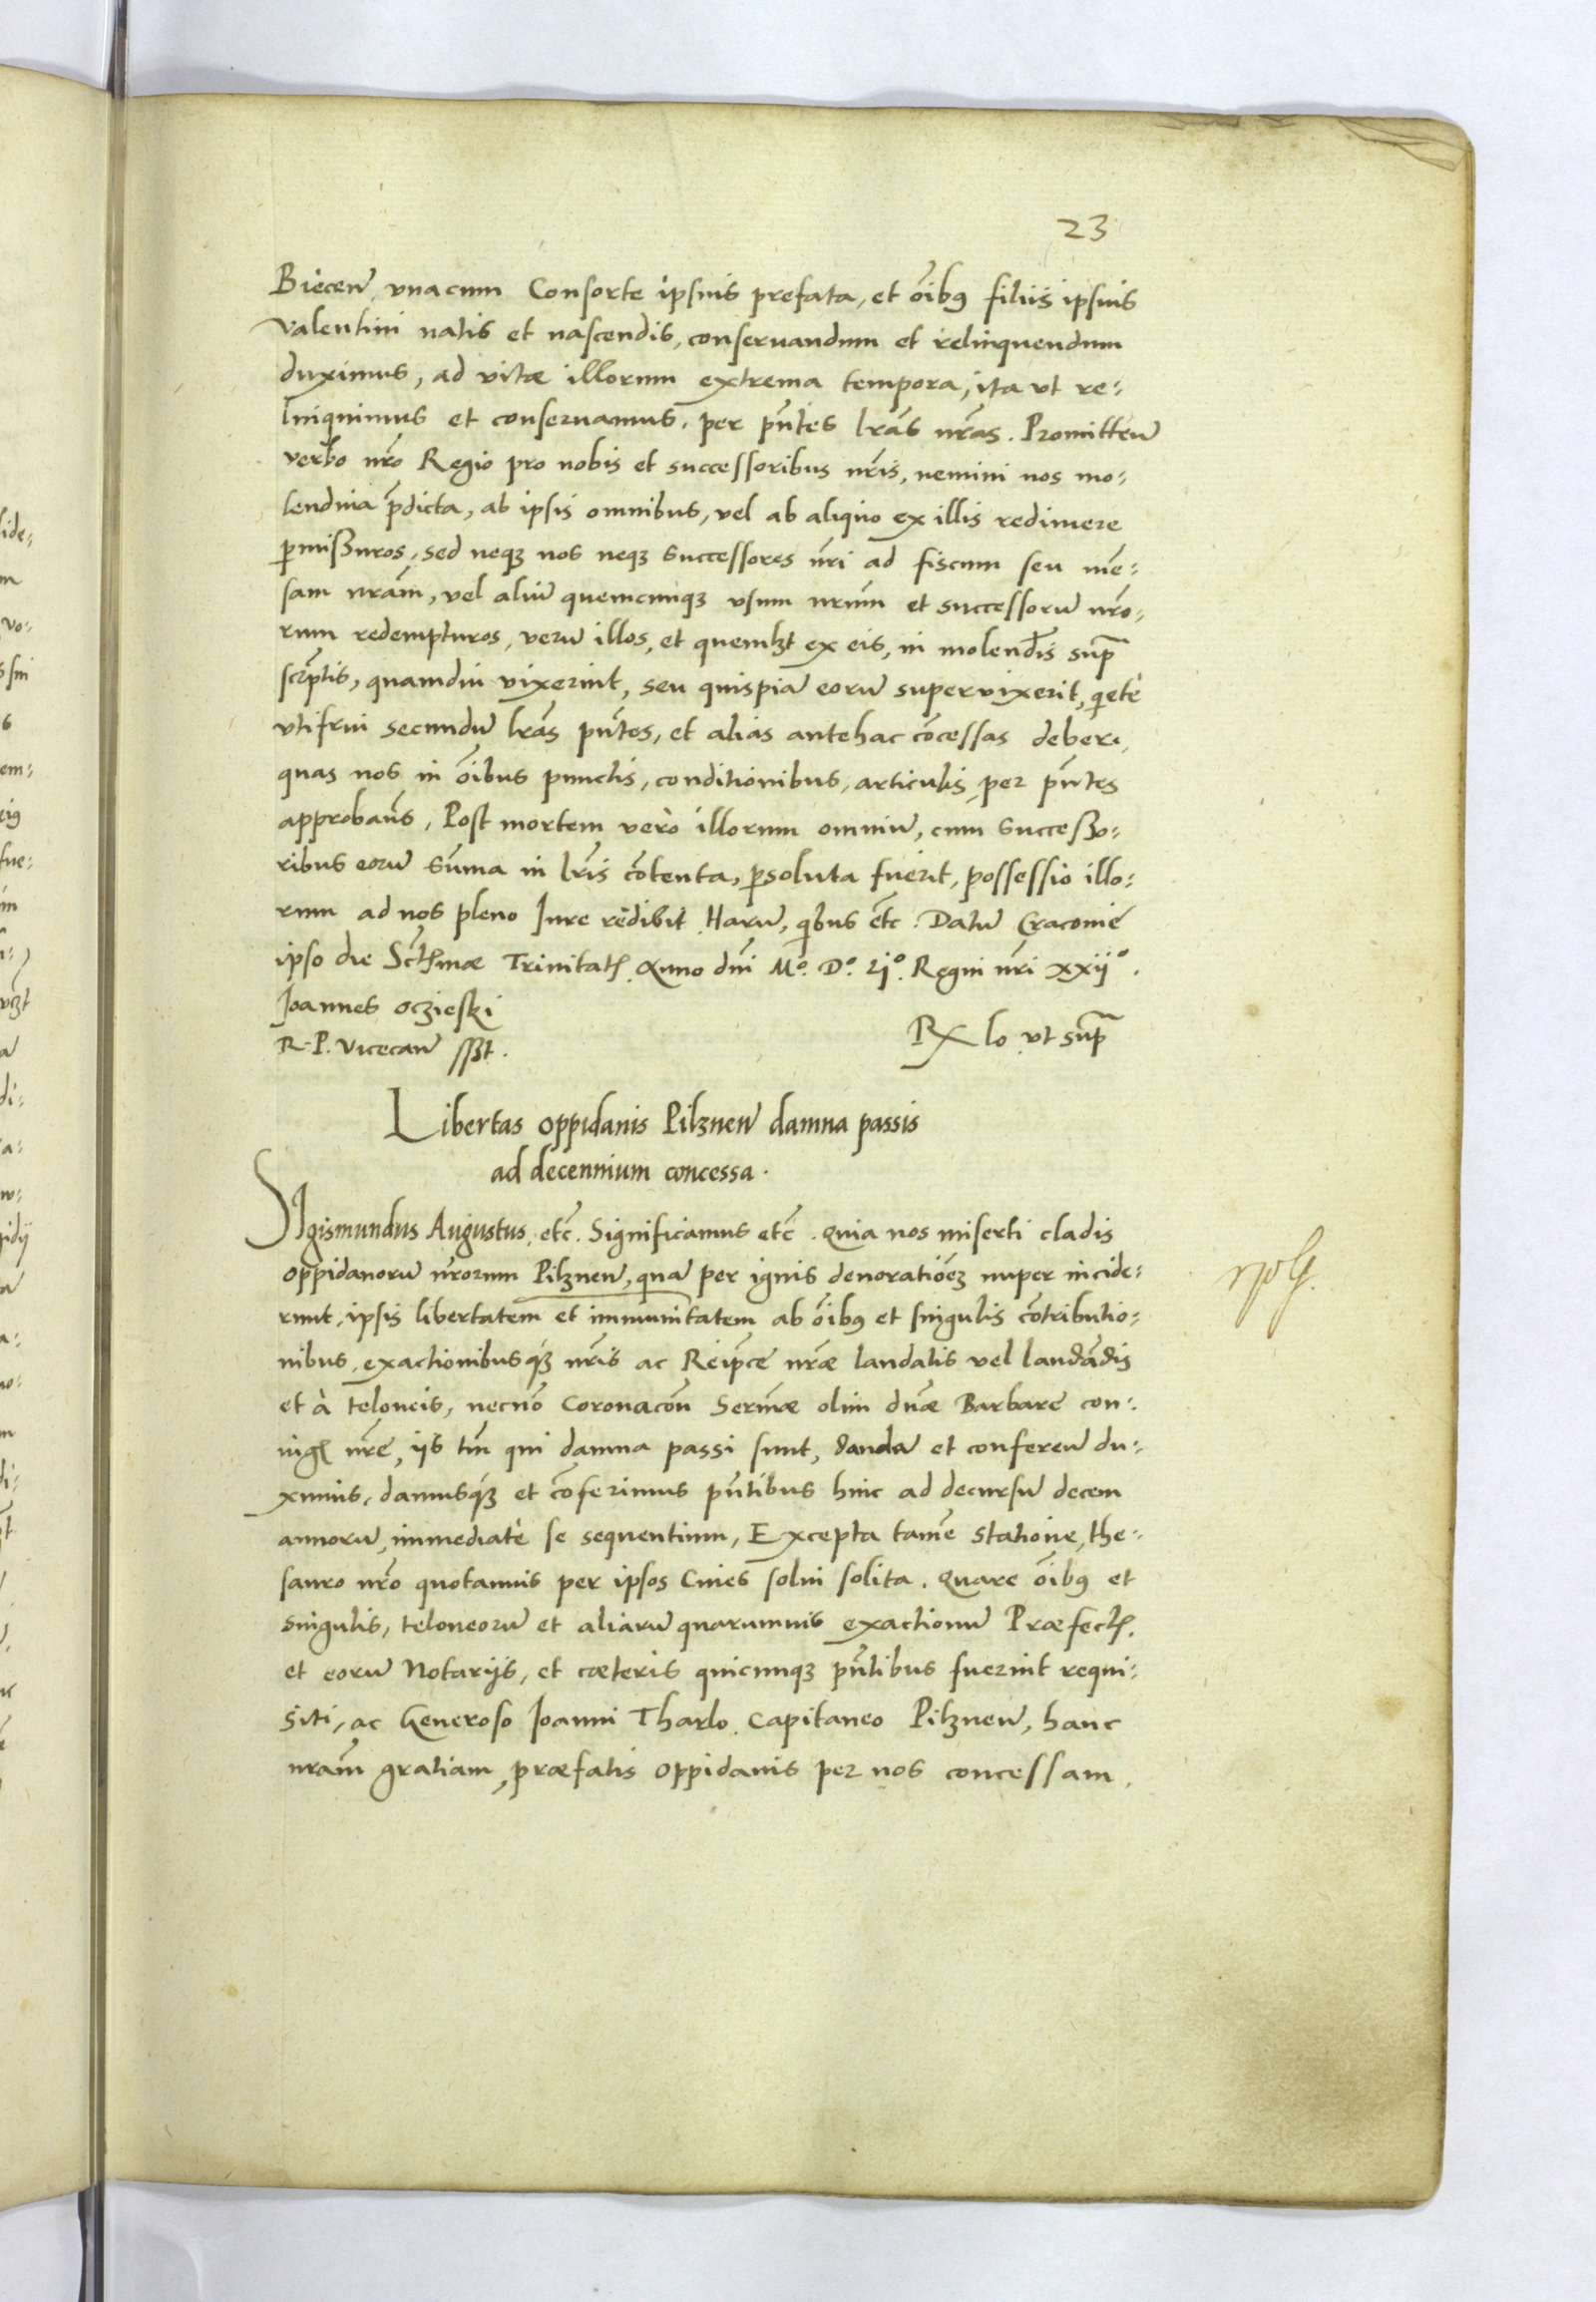 23
Biecen̄, vnacum Consorte ipsius prefata, et oībus filiis ipsius
Valentini natis et nascendis, conseruandum et relinquendum
duximus, ad vitæ illorum extrema tempora, ita vt re-
linquimus et conseruamus, per pn̄tes lrās nrās. Promitten̄
verbo nrō Regio pro nobis et successoribus nrīs, nemini nos mo-
lendina p̄dicta, ab ipsis omnibus, vel ab aliquo ex illis redimere
pmißuros, sed neqȝ nos neqȝ successores nrī ad fiscum seu mē-
sam nrām, vel aliū quemcunqȝ vsum nrūm et successorū nrō-
rum redempturos, verū illos, et quemlȝt ex eis, in molendīs sup̄
scrp̄tis, quamdiu vixerint, seu quispiā eorū supervixerit, qietè
vtifrui secundū lrās pn̄tes, et alias antehac cōcessas debere,
quas nos in oībus punctis, conditionibus, articulis, per pn̄tes
approbam̄s, Post mortem verò illorum omniū, cum succeßo-
ribus eorū sūma in lrīs cōtenta, psoluta fuerit, possessio illo-
rum ad nos pleno Iure redibit. Harū, qibus etc̄. Datū Cracoviæ
ipso die Sctīssmæ Trinitatꝭ. Anno dnī Mº. Dº. Ljº. Regni nrī xxijº.
Joannes Oczieski
R. P. Vicecan̄ sßt.
Rx lo vt sup̄
Libertas oppidanis Pilznen̄ damna passis
ad decennium concessa.
SIgismundus Augustus, etc̄. Significamus etc̄. Quia nos miserti cladis
oppidanorū nrōrum Pilznen̄, quā per ignis deuoratiōeȝ nuper incide-
runt, ipsis libertatem et immunitatem ab oībus et singulis cōtributio-
nibus, exactionibusqȝ nrīs ac Reipce nrǣ laudatis vel laudādis
et à teloneis, necnō Coronacōn Serm̄æ olim dnǣ Barbaræ con-
iugꝭ nrē, iis tm̄ qui damna passi sunt, dandā et conferen̄ du-
ximus, damusqȝ et cōferimus pn̄tibus hinc ad decursū decem
annorū, immediatè se sequentium, Excepta tamē statione, the-
sauro nrō quotannis per ipsos Ciues solui solita. Quare oībus et
singulis, teloneorū et aliarū quarumuis exactionū Præfectꝭ.
et eorū Notarijs, et cæteris quicunqȝ pn̄tibus fuerint requi-
siti, ac Generoso Ioanni Tharlo, Capitaneo Pilznen̄, hanc
nrām gratiam, præfatis oppidanis per nos concessam,